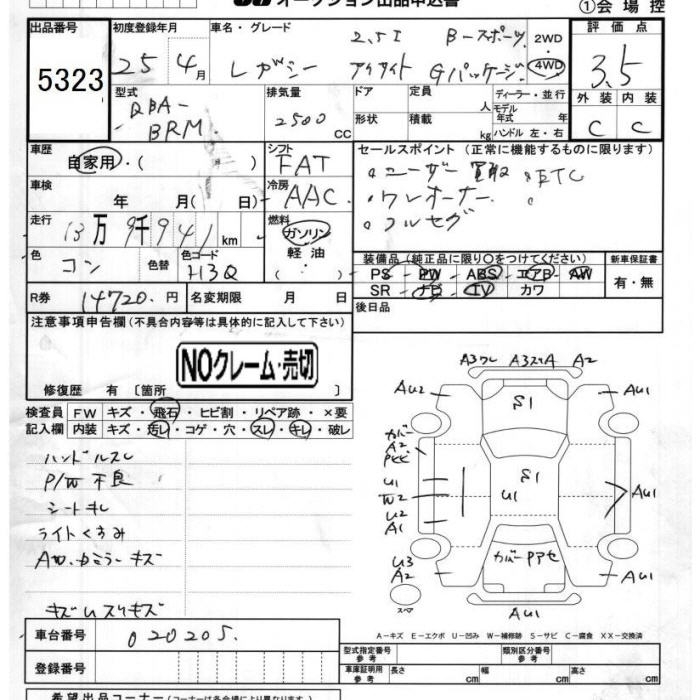 オークション出品申込書
①会場控
出品番号
5323
初度登録年月
25 4月
車名・グレード
2.5I B-スポーツ
レガシー アイサイト Gパッケージ
2WD
4WD
評価点
3.5
外装 内装
C C
型式
DBA-
BRM
排気量
2500 cc
ドア
形状
定員 人
積載 kg
ディーラー・並行
モデル年式 年
ハンドル 左・右
車歴
自家用・( )
シフト
FAT
セールスポイント (正常に機能するものに限ります)
・ユーザー買取 ・ETC
・ワンオーナー
・フルセグ
車検
年 月( 日)
冷房
AAC
走行
13万9千941km
燃料
ガソリン
軽油
・( )
色
コン
色替
色コード
H3Q
装備品(純正品に限り○をつけてください)
PS・PW・ABS・エアB・AW
SR・ナビ・TV・カワ
新車保証書
有・無
R券 14720円
名変期限 月 日
後日品
注意事項申告欄(不具合内容等は具体的に記入して下さい)
NOクレーム・売切
修復歴 有 [箇所 ]
検査員記入欄
FW キズ・飛石・ヒビ割・リペア跡・×要
内装 キズ・汚レ・コゲ・穴・スレ・キレ・破レ
ハンドルスレ
P/W不良
シートキレ
ライトくすみ
AW、カミラーキズ
キズUスリキズ
A3ワレ A3スリA A2
AU2
AU1
S1
カバー
A2
PKズ
U1
W2
U2
A1
S1
U1
AU1
U3
A2
カバーPアセ
AU1
スペア
AU1
A-キズ E-エクボ U-凹み W-補修跡 S-サビ C-腐食 XX-交換済
車台番号
020205.
登録番号
型式指定番号 参考
類別区分番号 参考
車庫証明用 参考
長さ cm
幅 cm
高さ cm
希望出品コーナー(コーナーは各会場により異なります)